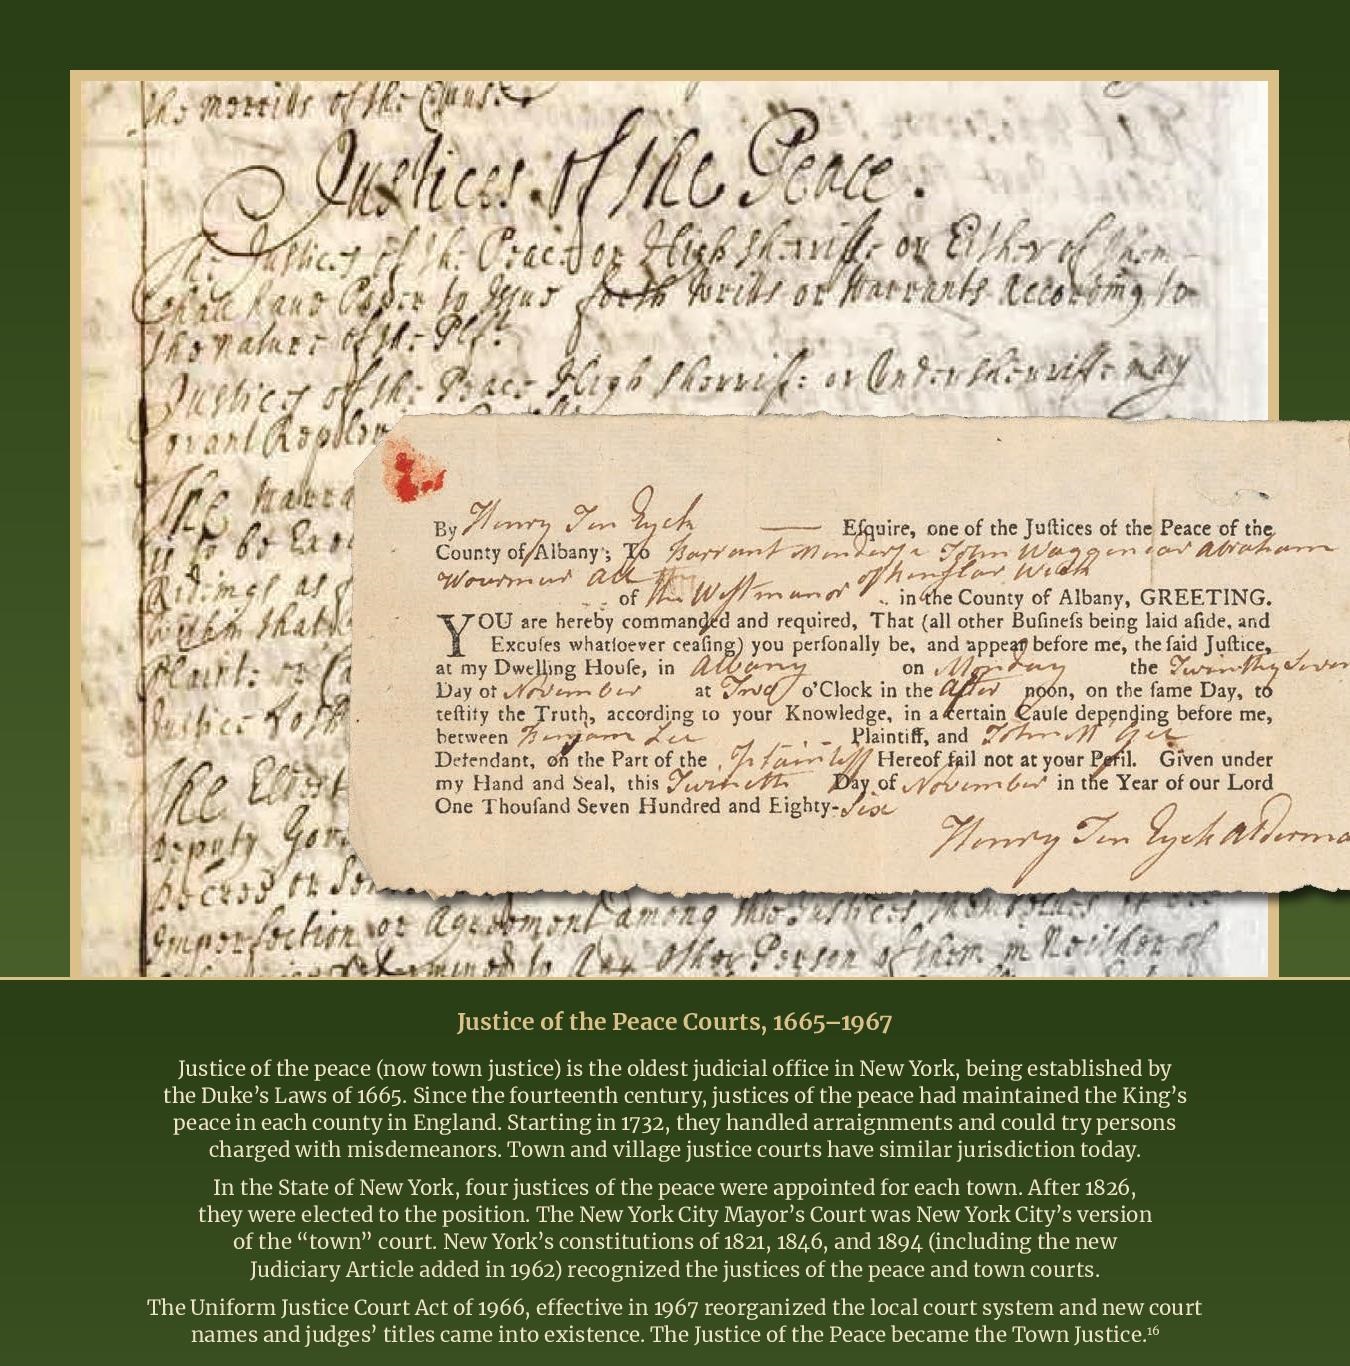 the
Justices of the Peace.
The Justices of the Peace or High Sherriffe or Either of them
shall have Power to Issue forth Writts or Warrants according to
the nature of the
Justices of the Peace High Sherriffe or Undersherriffe may
The Warra
as
that
The Eldest
Deputy
or Agreement among the Justices
to Any Other Person of them in Neither of
By Henry Ten Eyck Eſquire, one of the Juſtices of the Peace of the
County of Albany; To John Waggenear Abraham
All
of the Westmanor in the County of Albany, GREETING.
YOU are hereby commanded and required, That (all other Buſineſs being laid aſide, and
Excuſes whatſoever ceaſing) you perſonally be, and appear before me, the ſaid Juſtice,
at my Dwelling House, in Albany on Monday the Twinthy Seven
Day of November at Two o'Clock in the After noon, on the ſame Day, to
teſtify the Truth, according to your Knowledge, in a certain Cauſe depending before me,
between Benjam Lee Plaintiff, and John
Defendant, on the Part of the Plaintiff Hereof fail not at your Peril. Given under
my Hand and Seal, this Twineth Day of November in the Year of our Lord
One Thouſand Seven Hundred and Eighty-Six
Henry Ten Eyck Alderma
Justice of the Peace Courts, 1665–1967
Justice of the peace (now town justice) is the oldest judicial office in New York, being established by
the Duke’s Laws of 1665. Since the fourteenth century, justices of the peace had maintained the King’s
peace in each county in England. Starting in 1732, they handled arraignments and could try persons
charged with misdemeanors. Town and village justice courts have similar jurisdiction today.
In the State of New York, four justices of the peace were appointed for each town. After 1826,
they were elected to the position. The New York City Mayor’s Court was New York City’s version
of the “town” court. New York’s constitutions of 1821, 1846, and 1894 (including the new
Judiciary Article added in 1962) recognized the justices of the peace and town courts.
The Uniform Justice Court Act of 1966, effective in 1967 reorganized the local court system and new court
names and judges’ titles came into existence. The Justice of the Peace became the Town Justice.16